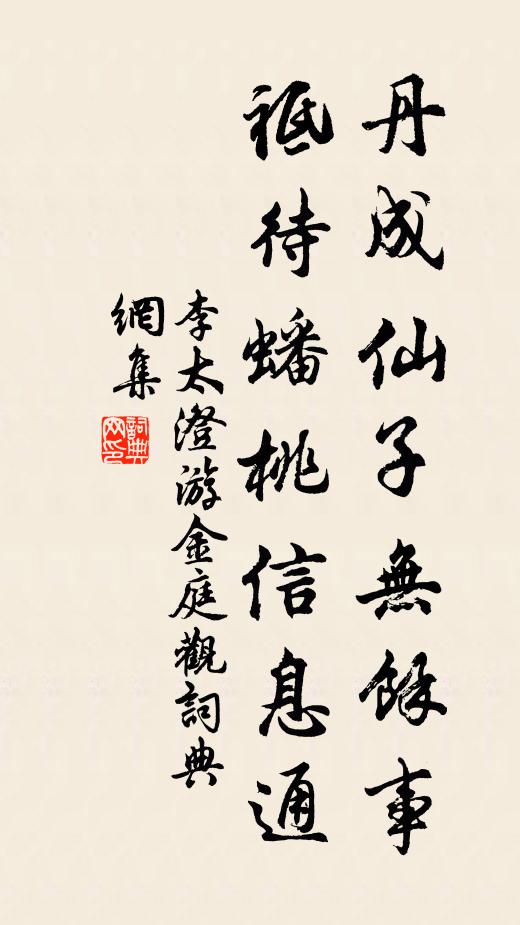 丹成仙子無餘事
祗待蟠桃信息通
李太澄游金庭觀詞典
網集
詞典網印